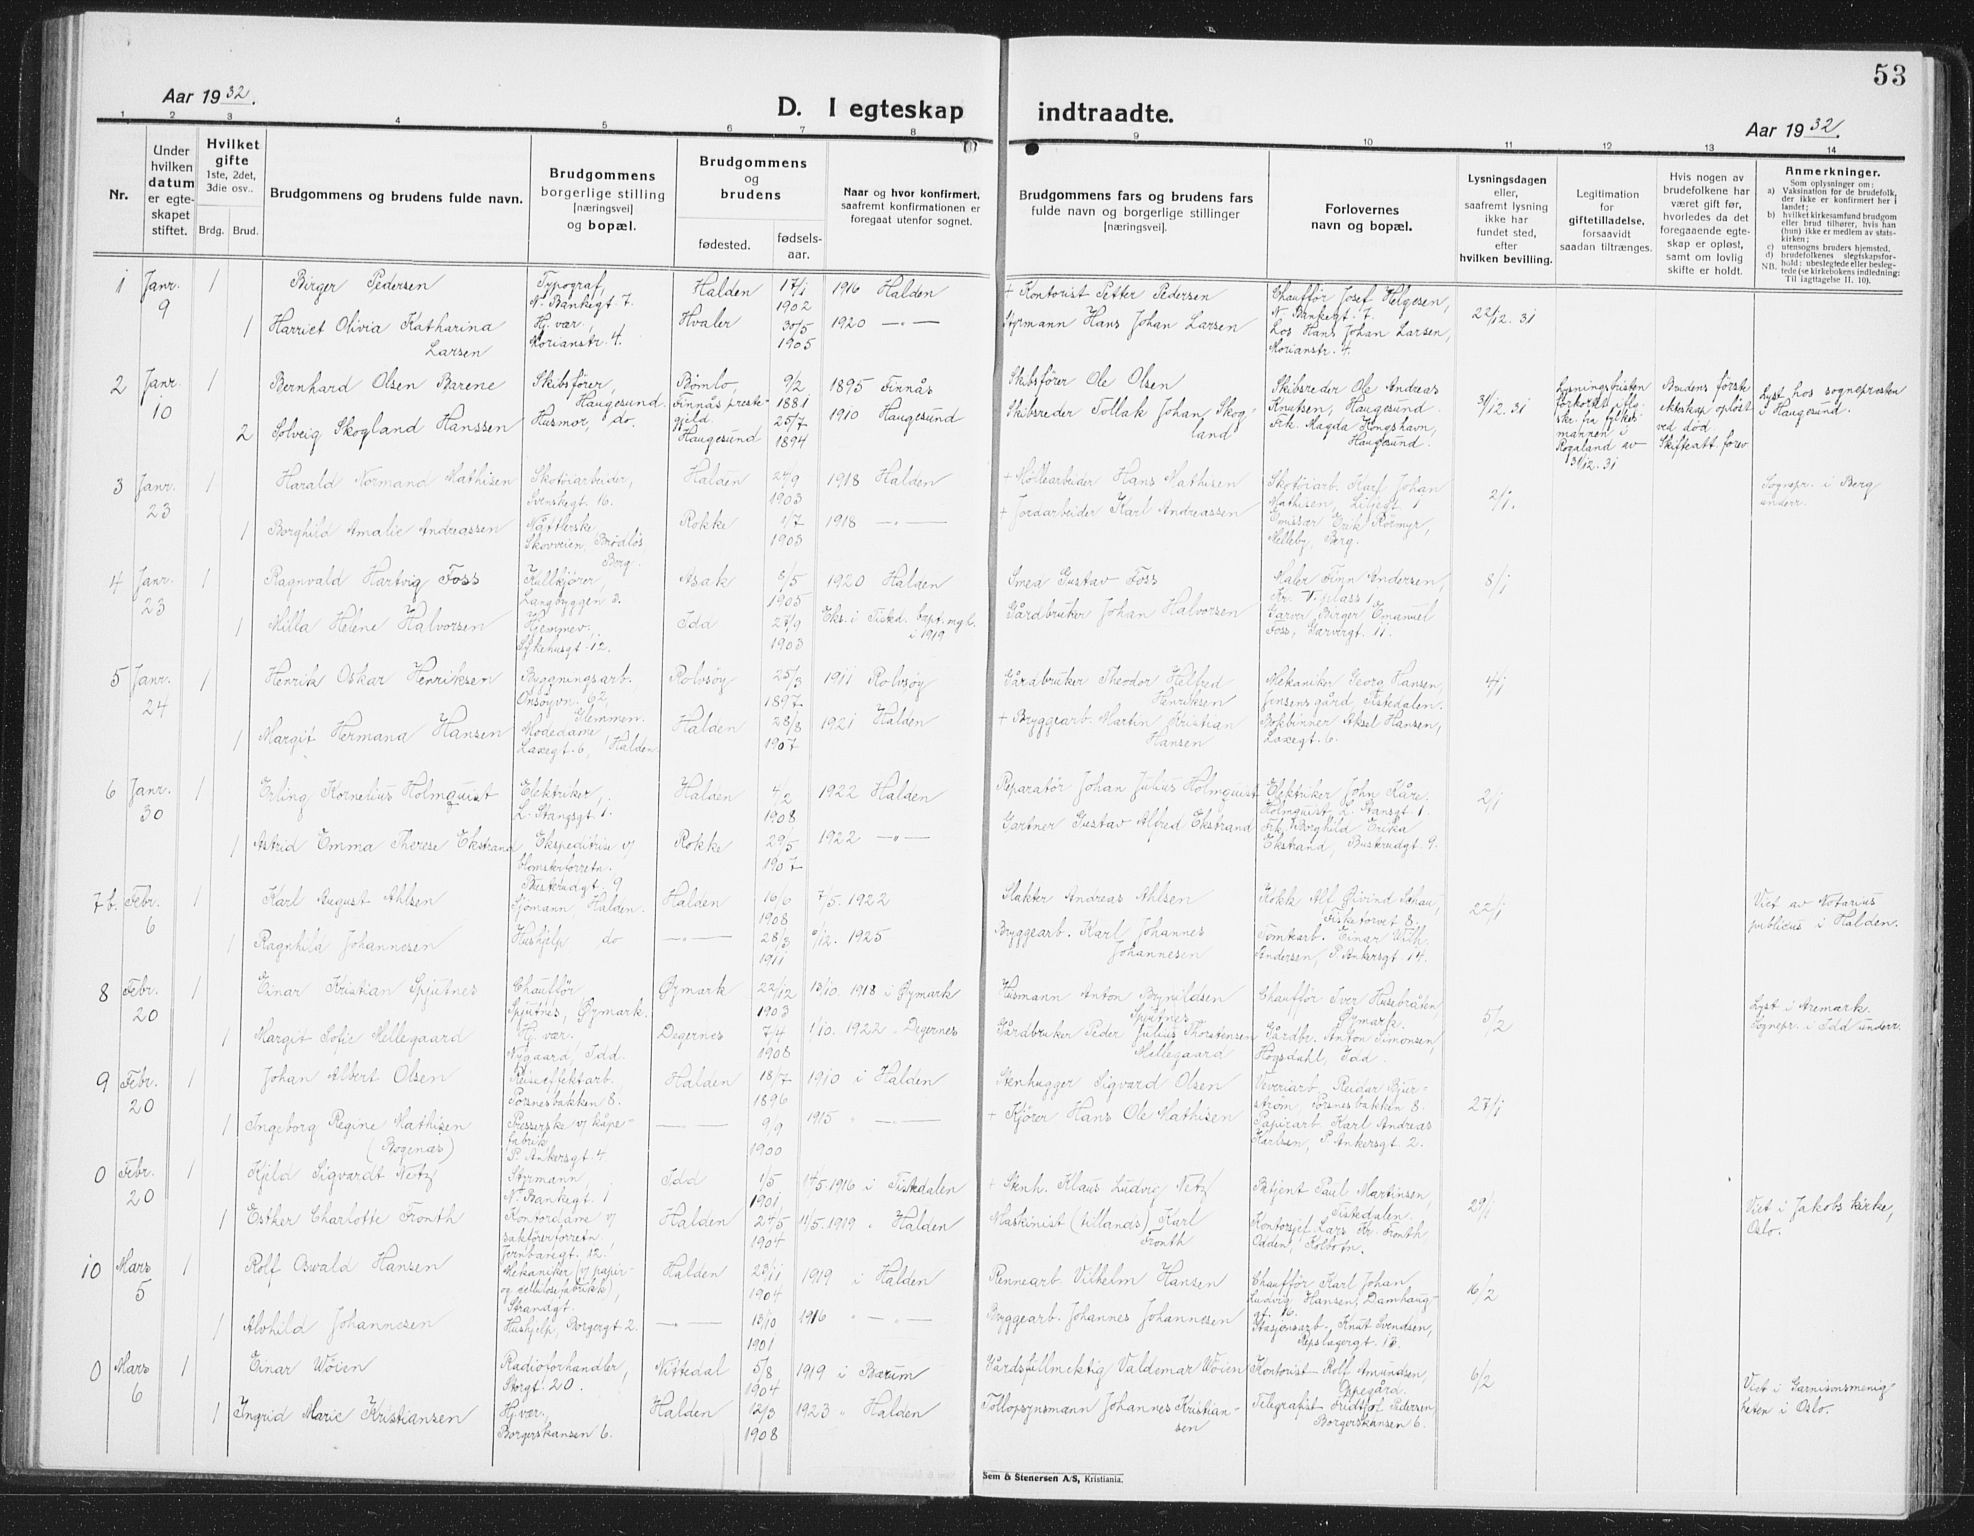 53
Aar 1932.
D. I egteskap indtraadte.
Aar 1932
1 2 3 4 5 6 7 8 9 10 11 12 13 14
Nr.
Under hvilken datum er egteskapet stiftet.
Hvilket gifte 1ste, 2det, 3die osv..
Brdg. Brud.
Brudgommens og brudens fulde navn.
Brudgommens borgerlige stilling [næringsvei] og bopæl.
Brudgommens og brudens
fødested.
fødselsaar.
Naar og hvor konfirmert, saafremt konfirmationen er foregaat utenfor sognet.
Brudgommens fars og brudens fars fulde navn og borgerlige stillinger [næringsvei].
Forlovernes navn og bopæl.
Lysningsdagen eller, saafremt lysning ikke har fundet sted, efter hvilken bevilling.
Legitimation for giftetilladelse, forsaavidt saadan tiltrænges.
Hvis nogen av brudefolkene har været gift før, hvorledes da det foregaaende egteskap er opløst, samt om lovlig skifte er holdt.
Anmerkninger.
Som oplysninger om:
a) Vaksination for de brudefolk, der ikke er konfirmert her i landet;
b) hvilket kirkesamfund brudgom eller brud tilhører, hvis han (hun) ikke er medlem av statskirken;
c) utensogns bruders hjemsted.
d) brudefolkenes slegtskapsforhold: ubeslegtede eller beslegtede (se kirkebokens indledning: Til iagttagelse II. 10).
NB.
1 Janr. 9 1 Birger Pedersen Typograf, N. Bankegt. 7. Halden 17/1 1902 1916 Halden + Kontorist Petter Pedersen Chauffør Josef Helgesen, N. Bankegt. 7. 22/12. 31
1 Harriet Olivia Katharina Larsen Hj. vær., Norianstr. 4. Hvaler 30/5 1905 1920 —"— Styrmann Hans Johan Larsen Los Hans Johan Larsen, Norianstr. 4.
2 Janr. 10 1 Bernhard Olsen Barene Skibsfører, Haugesund. Bømlo, Finnås prestegjeld. 9/2 1881 1895 Finnås Skibsfører Ole Olsen Skibsreder Ole Andreas Knutsen, Haugesund. 31/12. 31 Lysningsfristen forkortet iflg. skr. fra fylkesmannen i Rogaland av 31/12. 31 Brudens første ekteskap opløst ved død. Skifteatt. forev. Lyst hos sogneprosten i Haugesund.
2 Solveig Skogland Hanssen Husmor, do. Haugesund 25/7 1894 1910 Haugesund Skibsreder Tollak Johan Skogland Frk. Magda Kongshavn, Haugesund.
3 Janr. 23 1 Harald Normand Mathisen Skotøiarbeider, Svenskegt. 16. Halden 24/9 1903 1918 Halden + Møllearbeider Hans Mathisen Skotøiarb. Karl Johan Mathisen, Liljegt. 1 2/1. Sognepr. i Berg underr.
1 Borghild Amalie Andreassen Nåtlerske Skovveien, Brødløs, Berg. Rokke 1/7 1903 1918 —"— + Jordarbeider Karl Andreassen Emissær Erik Rörmyr, Melleby, Berg.
4 Janr. 23 1 Ragnvald Hartvig Foss Kullkjører, Langbryggen 3. Asak 8/5 1905 1920 Halden Smed Gustav Foss Maler Finn Andersen, Kr. V. plass 1. 8/1
1 Milla Helene Halvorsen Hjemmev. Sykehusgt. 12. Idd 27/9 1903 Eks. i Tisted. bapt. mgh. i 1919 Gårdbruker Johan Halvorsen Garver Birger Emanuel Foss, Garvergt. 11.
5 Janr. 24 1 Henrik Oskar Henriksen Byggningsarb. Onsøyvn. 92, Glemmen. Rolvsøy 25/3 1897 1911 Rolvsøy Gårdbruker Theodor Helbed Henriksen Mekaniker Georg Hansen, Jensens gård, Tistedalen. 4/1
1 Margit Hermana Hansen Modedame, Laxegt. 6, Halden. Halden 28/8 1907 1921 Halden + Bryggearb. Martin Kristian Hansen Bokbinner Aksel Hansen, Laxegt. 6.
6 Janr. 30 1 Erling Kornelius Holmquist Elektriker, L. Stangsgt. 1. Halden 4/2 1908 1922 Halden Reparatør Johan Julius Holmquist Elektriker John Kåre Holmquist L. Stansgt. 1. 2/1
1 Astrid Emma Therese Ekstrand Ekspeditrise v/ blomsterforretn. Buskrudgt. 9 Rokke 29/5 1907 1922 —"— Gartner Gustav Alfred Ekstrand Frk. Borghild Erika Ekstrand, Buskrudgt. 9.
7 b. Febr. 6 1 Karl August Ahlsen Sjømann, Halden. Halden 16/6 1908 7/5. 1922 Slakter Andreas Ahlsen Kokk Alf Øivind Schau, Fisketorvet 8. 22/1 Viet av Notarius publicus i Halden.
1 Ragnhild Johannesen Hushjelp do —"— 28/3 1911 6/12. 1925 Bryggearb. Karl Johannes Johannesen Tomtearb. Einar Wilh. Andersen, P. Ankersgt. 14.
8 Febr. 20 1 Einar Kristian Spjutnes Chauffør, Spjutnes, Øymark. Øymark 22/12 1903 13/10. 1918 i Øymark Husmann Anton Brynildsen Spjutnes Chauffør Iver Husebråten Øymark. 5/2 Lyst i Aremark. Sognepr. i Idd underr.
1 Margit Sofie Mellegaard Hj. vær. Nygaard, Idd. Degernes 7/4 1908 1/10. 1922 " Degernes Gårdbruker Peder Julius Thorstensen Mellegaard Gårdbr. Anton Simonsen, Hovsdahl, Idd.
9 Febr. 20 1 Johan Albert Olsen Reiseeffektarb. Porsnesbakken 8. Halden 18/7 1896 1910 i Halden Stenhugger Sigvard Olsen Veveriarb. Reidar Bjurstrøm, Porsnesbakken 8. 27/1
1 Ingeborg Regine Mathisen (Bogenæs) Presserske v/ kåpefabrik, P. Ankersgt. 4 —"— 9/9 1900 1915 " —"— + Kjører Hans Ole Mathisen Papirarb. Karl Andreas Karlsen, P. Ankersgt 2.
0 Febr. 20 1 Kjeld Sigvardt Netz Styrmann, N. Bankegt. 1 Idd 1/5 1901 14/5. 1916 i Tistedalen + Stenh. Klaus Ludvig Netz Betjent Paul Martinsen, Tistedalen. 29/1 Viet i Jakobs kirke, Oslo.
1 Esther Charlotte Fronth Kontordame v/ sakførerforretn., Jernbanegt. 12. Halden 24/5 1904 11/5. 1919 " Halden Maskinist (tillands) Karl Fronth Kontorsjef Lars Fr. Fronth Odden, Kolbotn.
10 Mars 5 1 Rolf Oswald Hansen Mekaniker (v/ papir- og cellulosefabrikk), Strandgt. Halden 23/11 1904 1919 i Halden Rennearb. Vilhelm Hansen Chauffør Karl Johan Ludvig Hansen, Damhauggt. 16. 16/2
1 Alvhild Johannesen Hushjelp, Borgergt 2. —"— 13/10 1901 1916 " — " — Bryggearb. Johannes Johannesen Stasjonsarb. Knut Svendsen, Repslagergt. 13.
0 Mars 6 1 Einar Wöien Radioforhandler, Storgt. 20. Nittedal 5/8 1904 1919 i Bærum Gårdsfullmektig Valdemar Wöien Kontorist Rolf Amundsen, Oppegård. 6/2 Viet i Garnisonsmenigheten i Oslo.
1 Ingrid Marie Kristiansen Hj. vær. Borgerskansen 6. Halden 12/3 1908 1923 " Halden Tollopsynsmann Johannes Kristiansen Telegrafist Fridtjof Pedersen Borgerskansen 6.
Sem & Stenersen A/S, Kristiania.